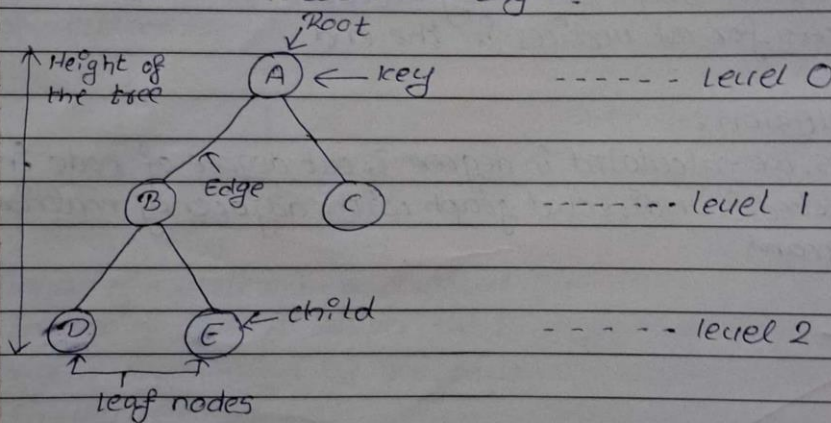 Root
Height of
the tree
A
key
level 0
Edge
B
C
level 1
D
E
child
level 2
leaf nodes